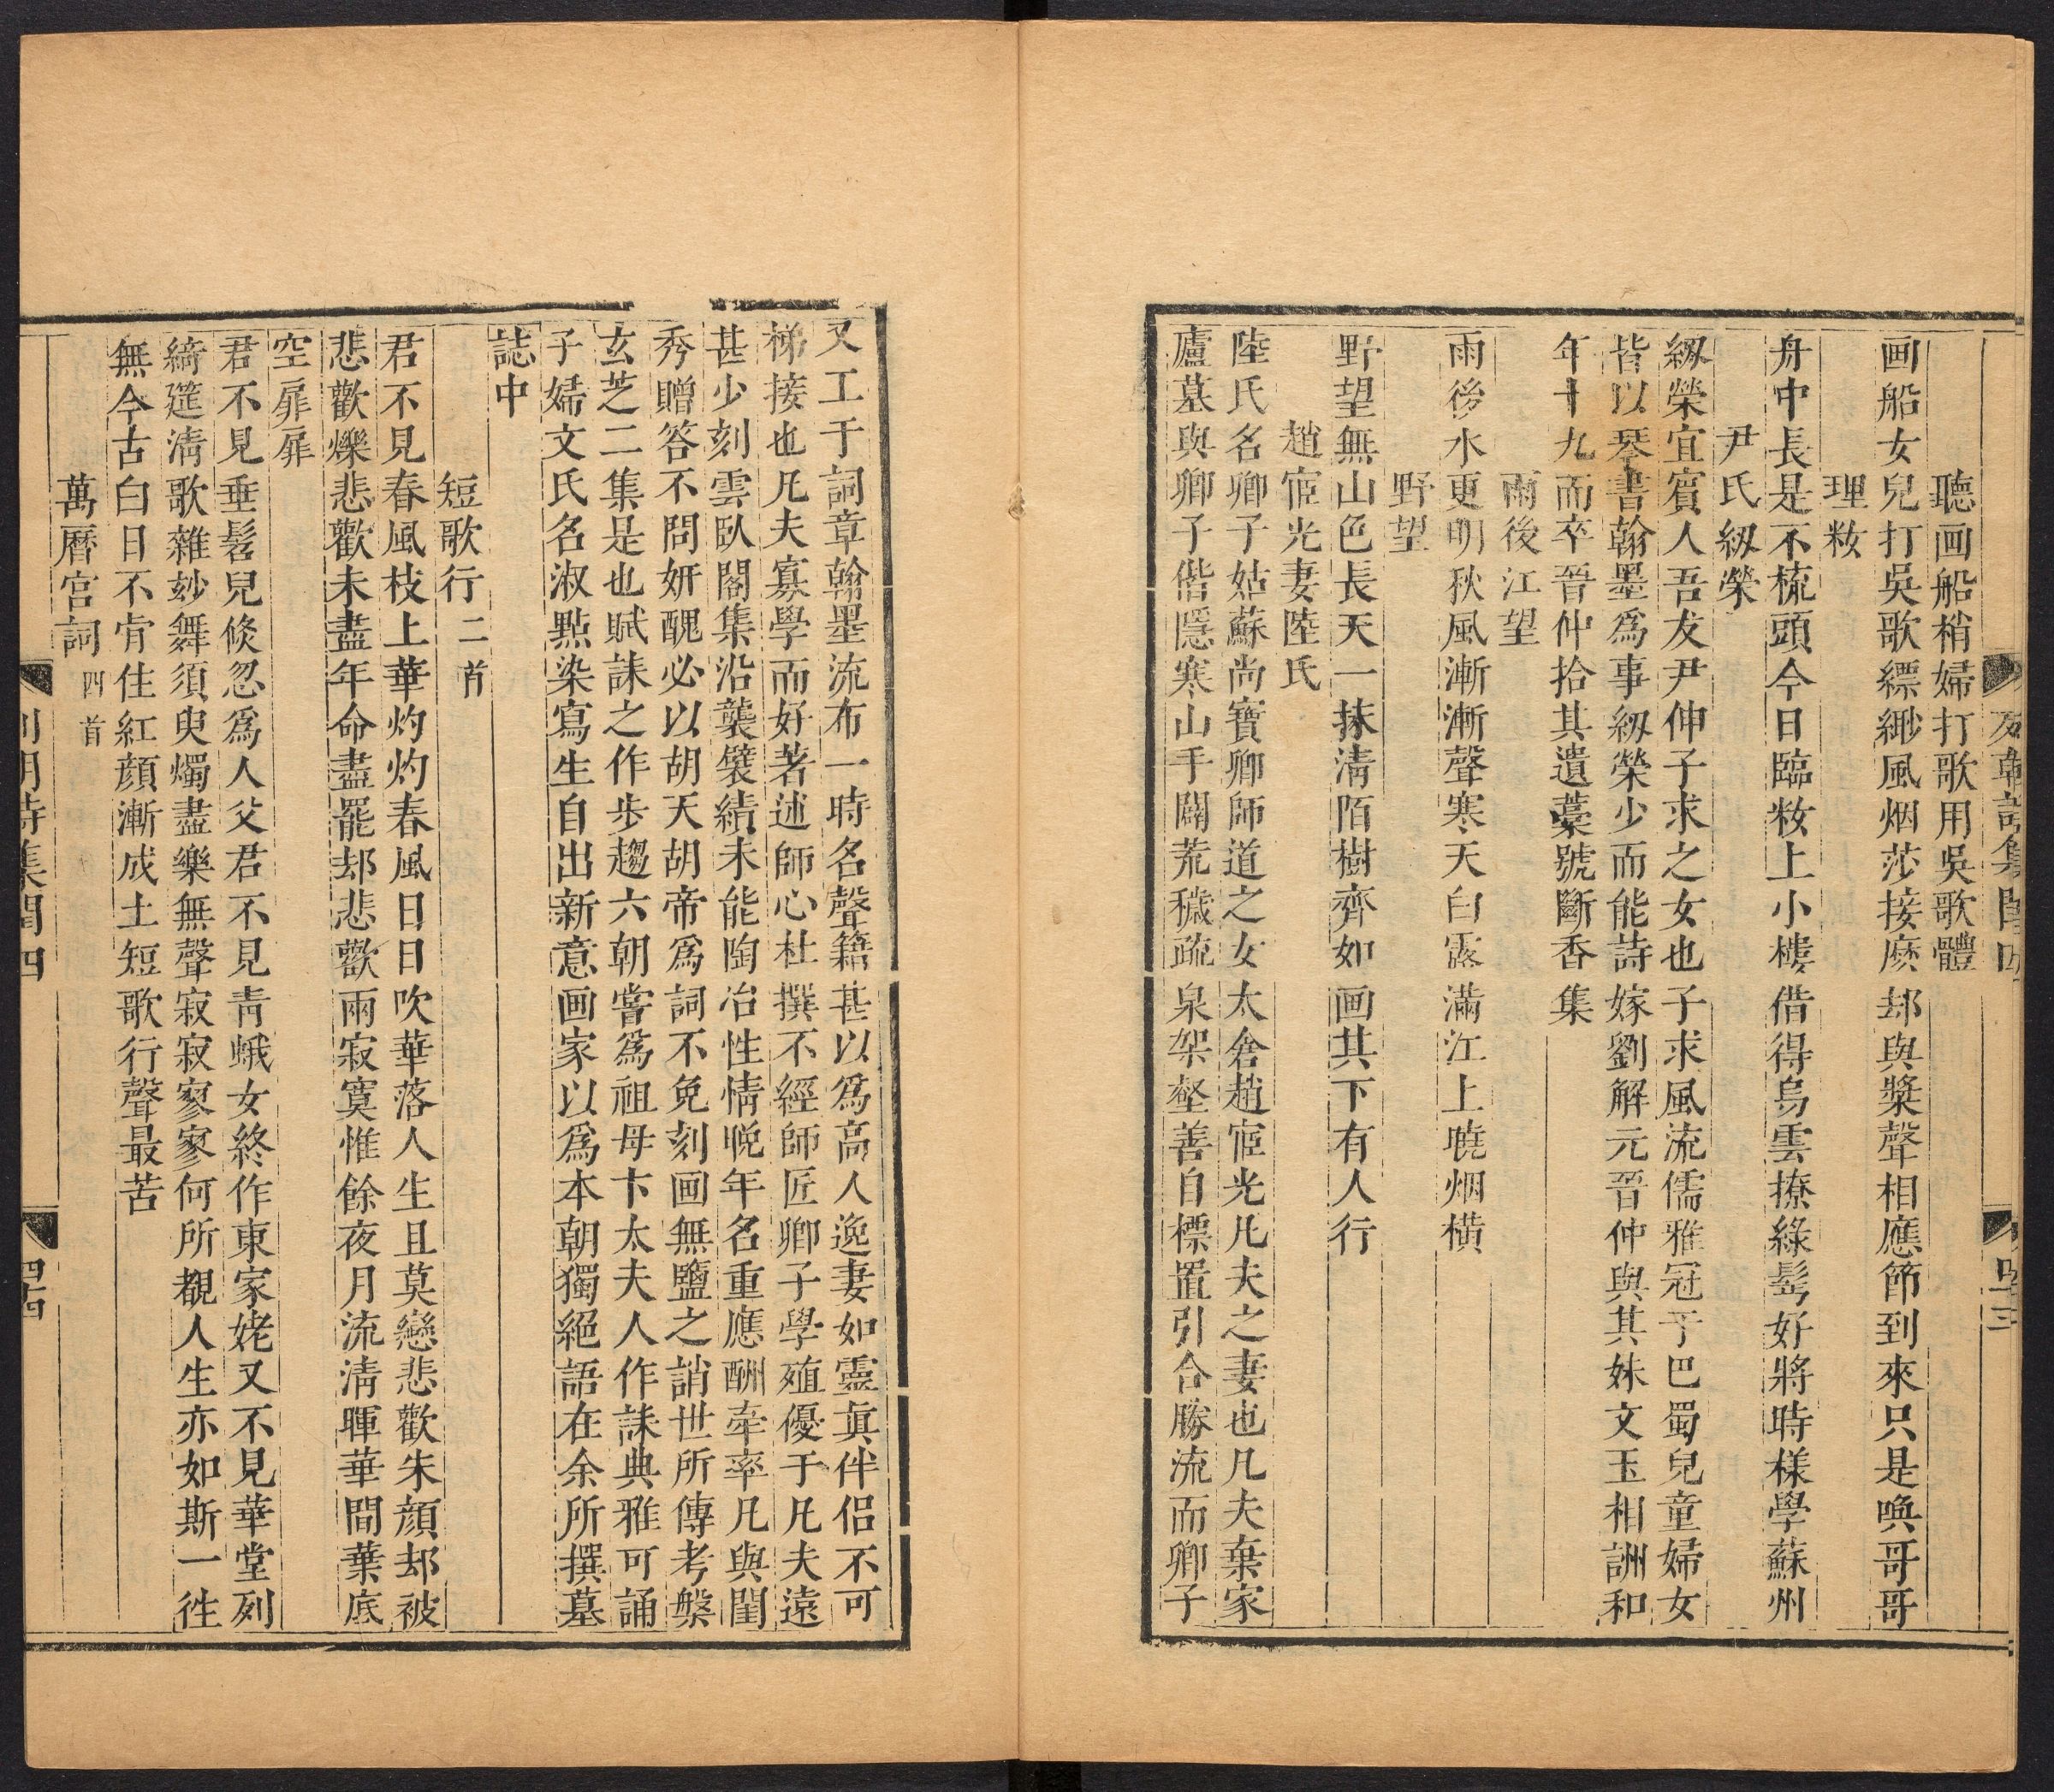 聽画船梢婦打歌用吳歌體
画船女兒打吳歌縹緲風烟莎接麽却與槳聲相應節到來只是喚哥哥
理妝
舟中長是不梳頭今日臨妝上小樓借得烏雲撩綠髩好將時樣學蘇州
尹氏紉榮
紉榮宜賓人吾友尹伸子求之女也子求風流儒雅冠于巴蜀兒童婦女
皆以琴書翰墨爲事紉榮少而能詩嫁劉解元晉仲與其妹文玉相詶和
年十九而卒晉仲拾其遺藁號斷香集
雨後江望
雨後水更明秋風漸漸聲寒天白露滿江上曉烟橫
野望
野望無山色長天一抹淸陌樹齊如画其下有人行
趙宧光妻陸氏
陸氏名卿子姑蘇尚寶卿師道之女太倉趙宧光凡夫之妻也凡夫棄家
廬墓與卿子偕隱寒山手闢荒穢疏泉架壑善自標置引合勝流而卿子
又工于詞章翰墨流布一時名聲籍甚以爲高人逸妻如靈眞伴侶不可
梯接也凡夫寡學而好著述師心杜撰不經師匠卿子學殖優于凡夫遠
甚少刻雲臥閣集沿襲襞績未能陶冶性情晚年名重應酬牽率凡與閨
秀贈答不問妍醜必以胡天胡帝爲詞不免刻画無鹽之誚世所傳考槃
玄芝二集是也賦誄之作步趨六朝嘗爲祖母卞太夫人作誄典雅可誦
子婦文氏名淑點染寫生自出新意画家以爲本朝獨絕語在余所撰墓
誌中
短歌行二首
君不見春風枝上華灼灼春風日日吹華落人生且莫戀悲歡朱顏却被
悲歡爍悲歡未盡年命盡罷却悲歡兩寂寞惟餘夜月流淸暉華間葉底
空扉扉
君不見垂髫兒倏忽爲人父君不見靑蛾女終作東家姥又不見華堂列
綺筵淸歌雜妙舞須臾燭盡樂無聲寂寂寥寥何所覩人生亦如斯一徃
無今古白日不肯住紅顏漸成土短歌行聲最苦
萬曆宮詞四首